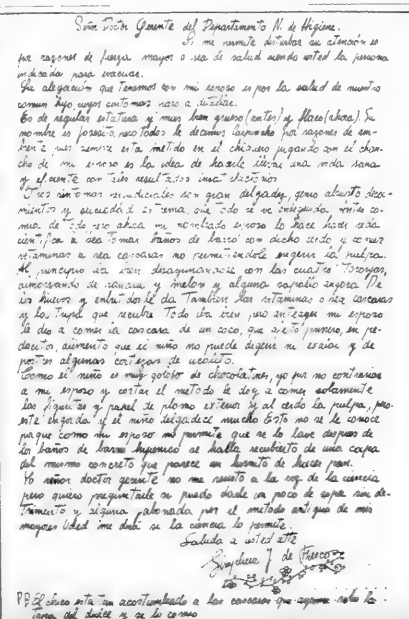 Señor Doctor Gerente del Departamento N. de Higiene.
Si me permite disturbar su atención es
por razones de fuerza mayor o sea de salud siendo usted la persona
indicada para evacuar.
La alegación que tenemos con mi esposo es por la salud de nuestro
comun hijo cuyos sintomas paso a detallar.
Es de regular estatura y muy bien grueso (antes) y flaco (ahora). Su
nombre es Joseito pero todos le decimos Carpincho por razones de
siempre esta metido en el chiquero jugando con el chan-
cho de mi esposo es la idea de hacerle llevar una vida sana
y eficiente con
Tres sintomas son gran delgadez, genio
y suciedad que todo se ve enseguida. Antes co-
mia de todo pero ahora mi nombrado esposo lo hace hacer vida
cientifica o sea tomar baños de barro con dicho cerdo y comer
vitaminas o sea cascaras no permitiendole ingerir la pulpa.
Al principio iba bien desayunandose con las cuatro toronjas,
almorzando de sandia y melon y alguna zapallo angora. De
los huevos y embutidos le da tambien las vitaminas o sea cascaras
y la tripa que recubre. Todo iba bien, pero anteayer mi esposo
le dio a comer la cascara de un coco, que si bien en pe-
dacitos, alimento que el niño no puede digerir ni exiliar y de
postres algunas cortezas de
Como el niño es muy goloso de chocolatines, yo por no contrariar
a mi esposo y cortar el metodo le doy a comer solamente
las figuritas y papel de plomo exterior y al cerdo la pulpa, pero
este engorda y el niño delgadece mucho. Esto no se le conoce
porque como mi esposo no permite que se lo lave despues de
los baños de barro higienico se halla recubierto de una capa
del mismo concreto que parece un hornito de hacer pan.
Yo señor doctor gerente no me resisto a la voz de la ciencia
pero quiero preguntarle si puedo darle un poco de sopa sin de-
trimento y alguna palonada por el metodo antiguo de mis
mayores. Usted me dirá si la ciencia lo permite.
Saluda a usted atte
Simplicia J de Fresco
PD El chico esta tan acostumbrado a las cascaras que ayer robo la
tapa del dulce y se la comio